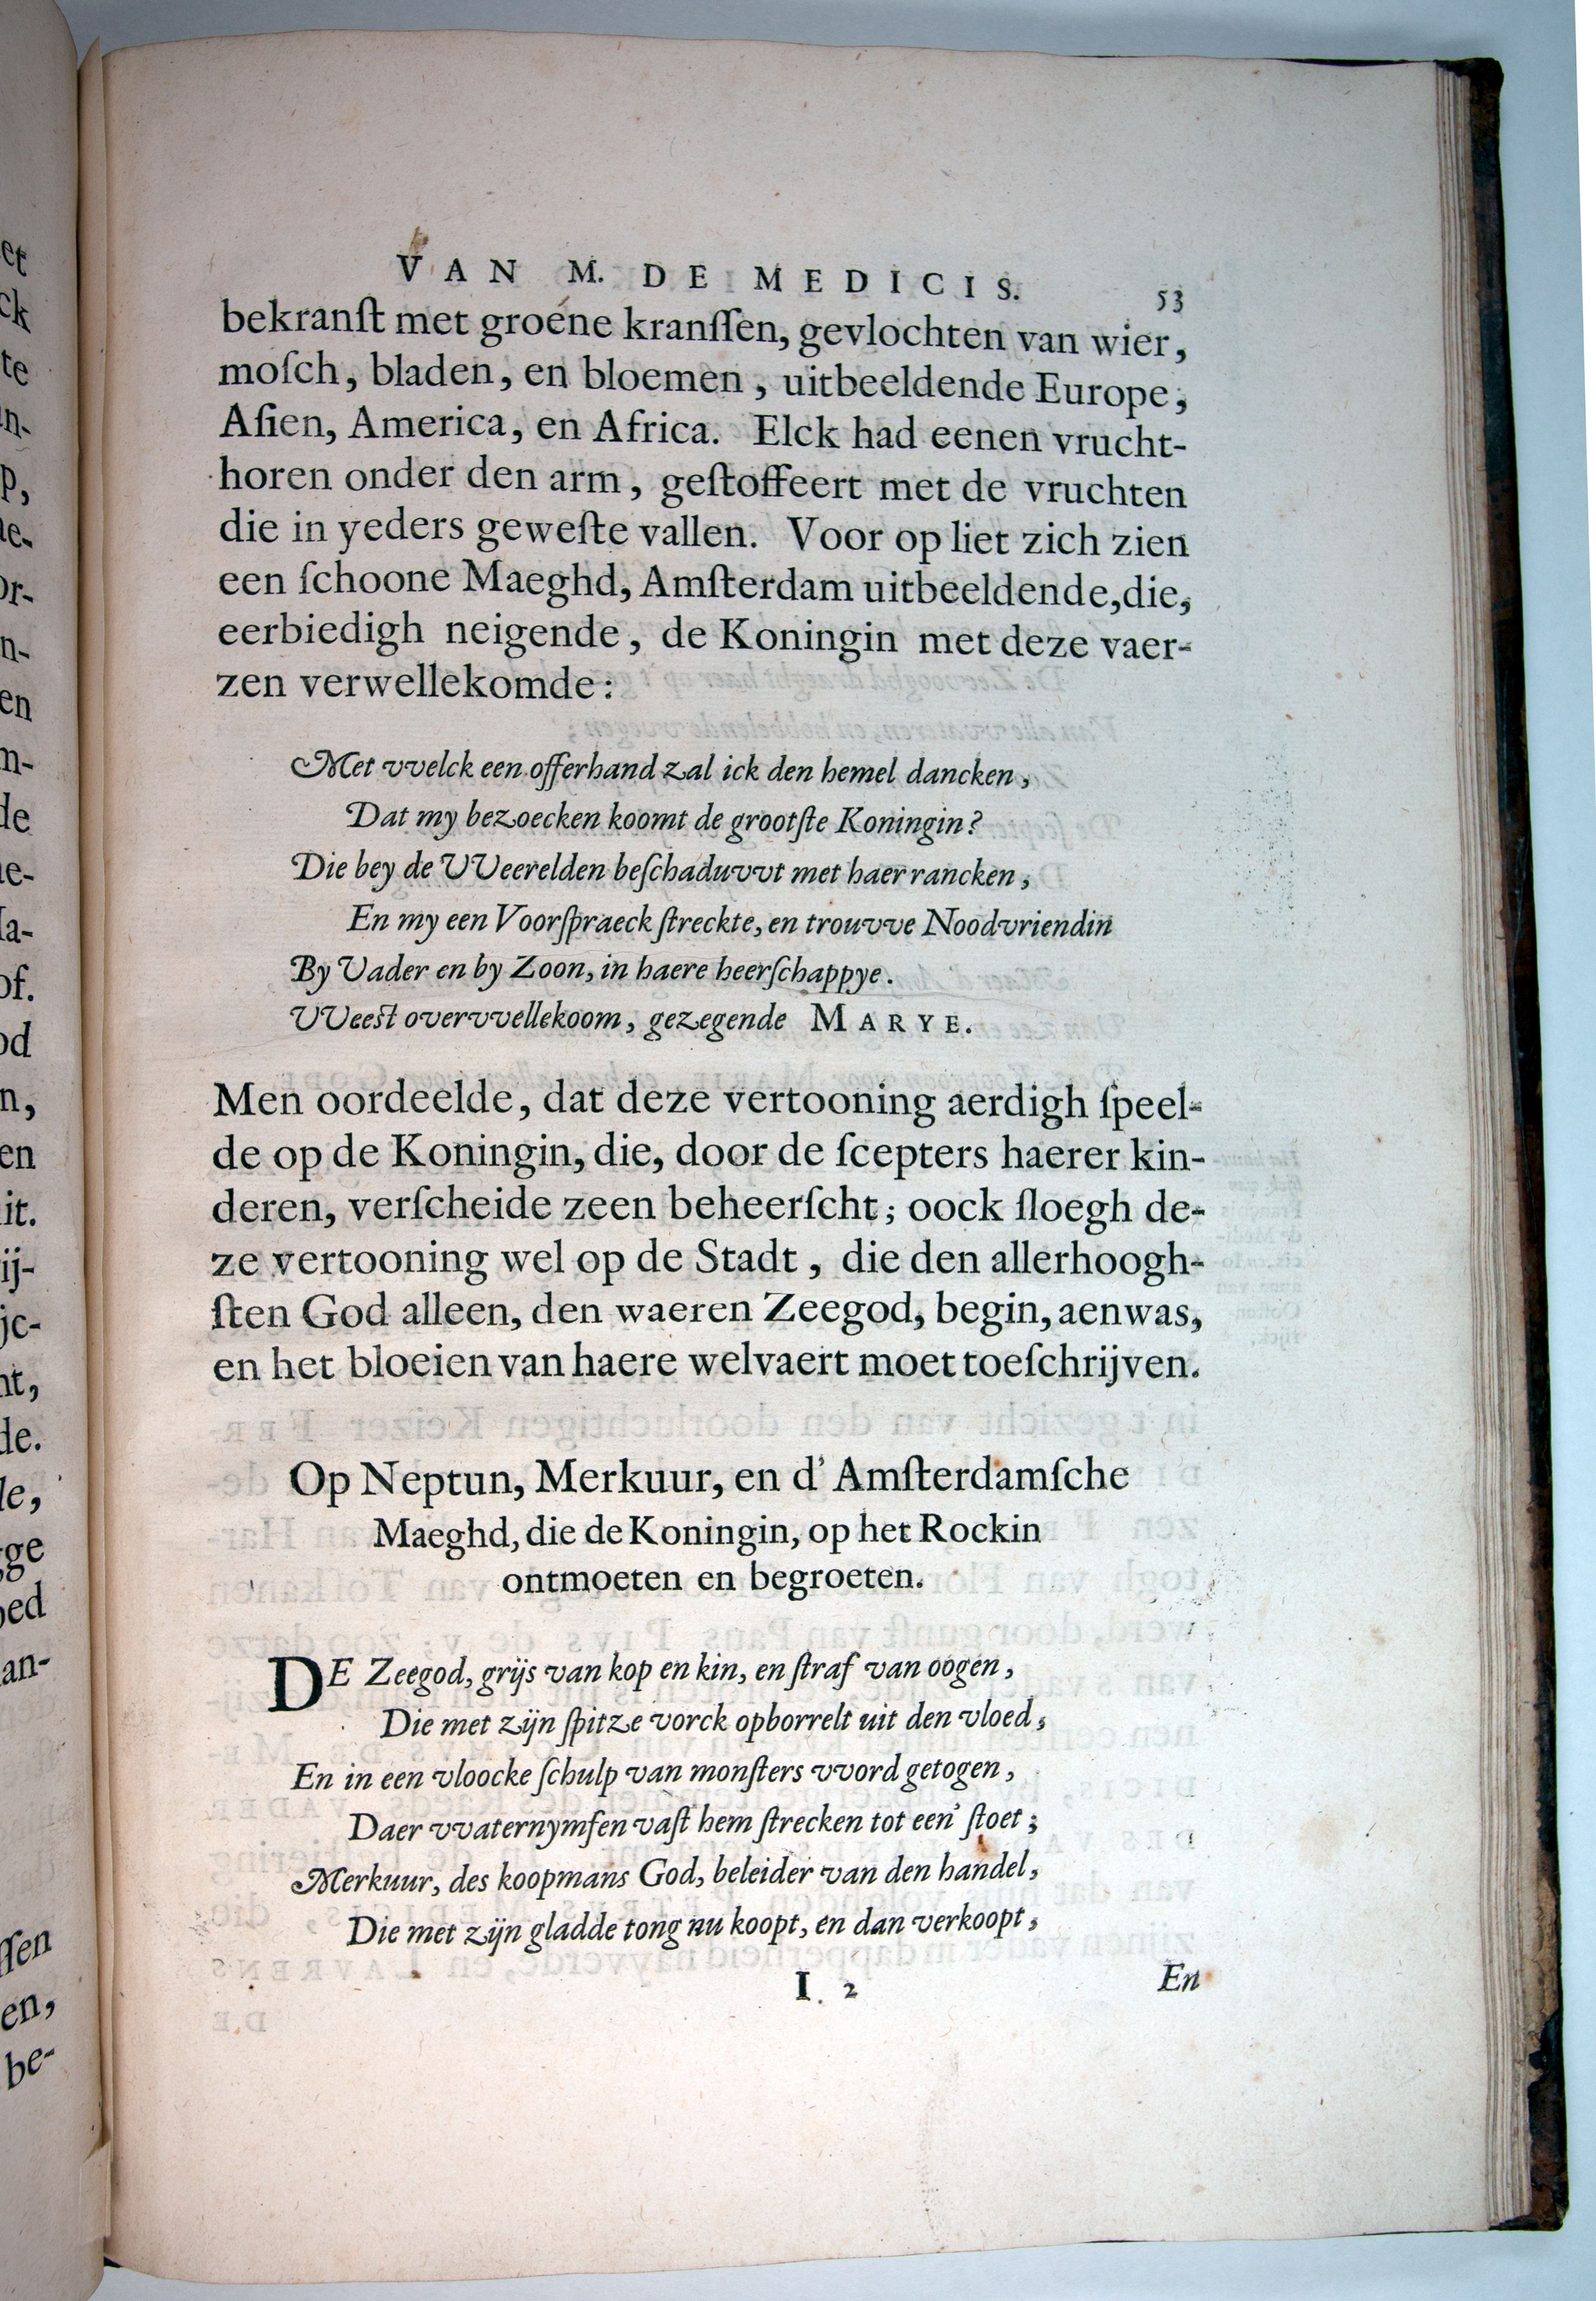 VAN M. DE MEDICIS. 53
bekranſt met groene kranſſen, gevlochten van wier,
moſch, bladen, en bloemen, uitbeeldende Europe,
Aſien, America, en Africa. Elck had eenen vrucht-
horen onder den arm, geſtoffeert met de vruchten
die in yeders geweſte vallen. Voor op liet zich zien
een ſchoone Maeghd, Amſterdam uitbeeldende, die,
eerbiedigh neigende, de Koningin met deze vaer-
zen verwellekomde:
Met vvelck een offerhand zal ick den hemel dancken,
Dat my bezoecken koomt de grootſte Koningin?
Die bey de VVeerelden beſchaduvvt met haer rancken,
En my een Voorſpraeck ſtreckte, en trouvve Noodvriendin
By Vader en by Zoon, in haere heerſchappye.
VVeest overvvellekoom, gezegende MARYE.
Men oordeelde, dat deze vertooning aerdigh ſpeel-
de op de Koningin, die, door de ſcepters haerer kin-
deren, verſcheide zeen beheerſcht; oock ſloegh de-
ze vertooning wel op de Stadt, die den allerhoogh-
ſten God alleen, den waeren Zeegod, begin, aenwas,
en het bloeien van haere welvaert moet toeſchrijven.
Op Neptun, Merkuur, en d' Amſterdamſche
Maeghd, die de Koningin, op het Rockin
ontmoeten en begroeten.
DE Zeegod, grijs van kop en kin, en ſtraf van oogen,
Die met zijn ſpitze vorck opborrelt uit den vloed,
En in een vloocke ſchulp van monſters vvord getogen,
Daer vvaternymfen vaſt hem ſtrecken tot een' ſtoet;
Merkuur, des koopmans God, beleider van den handel,
Die met zijn gladde tong nu koopt, en dan verkoopt,
I 2 En